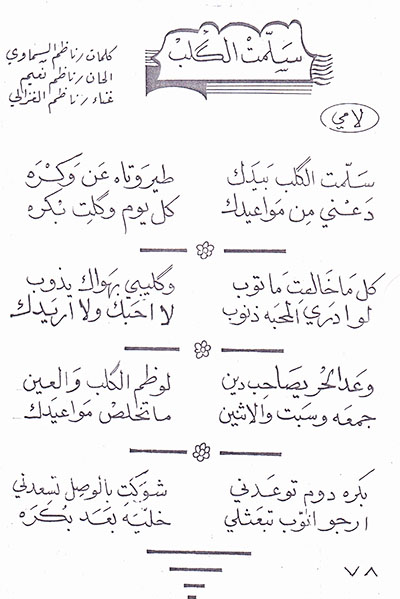 سلّمت الگلب
كلمات / ناظم السماوي
الحان / ناظم نعيم
غناء / ناظم الغزالي
لامي
سلّمت الگلب بيدك طيروتاه عن وكره
دعني من مواعيدك كل يوم وگلت بكره
كل ما خالفت ما توب وگليبي بهواك يذوب
لو ادري المحبه ذنوب لا احبك ولا اريدك
وعد الحر يصاحب دين لوظم الگلب والعين
جمعه وسبت والاثنين ما تخلص مواعيدك
بكره دوم توعدني شوكت بالوصل تسعدني
ارجو انوب تبعثلي خليه بعد بكره
٧٨